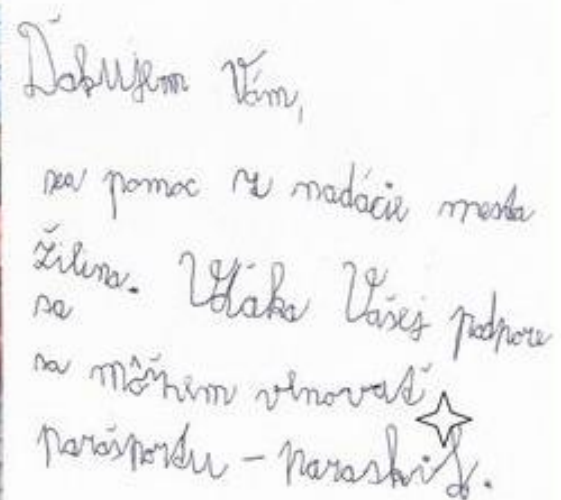 Ďakujem Vám,
za pomoc z nadácie mesta
Žilina. Vďaka Vašej podpore
sa
sa môžem venovať
parašportu - paraski